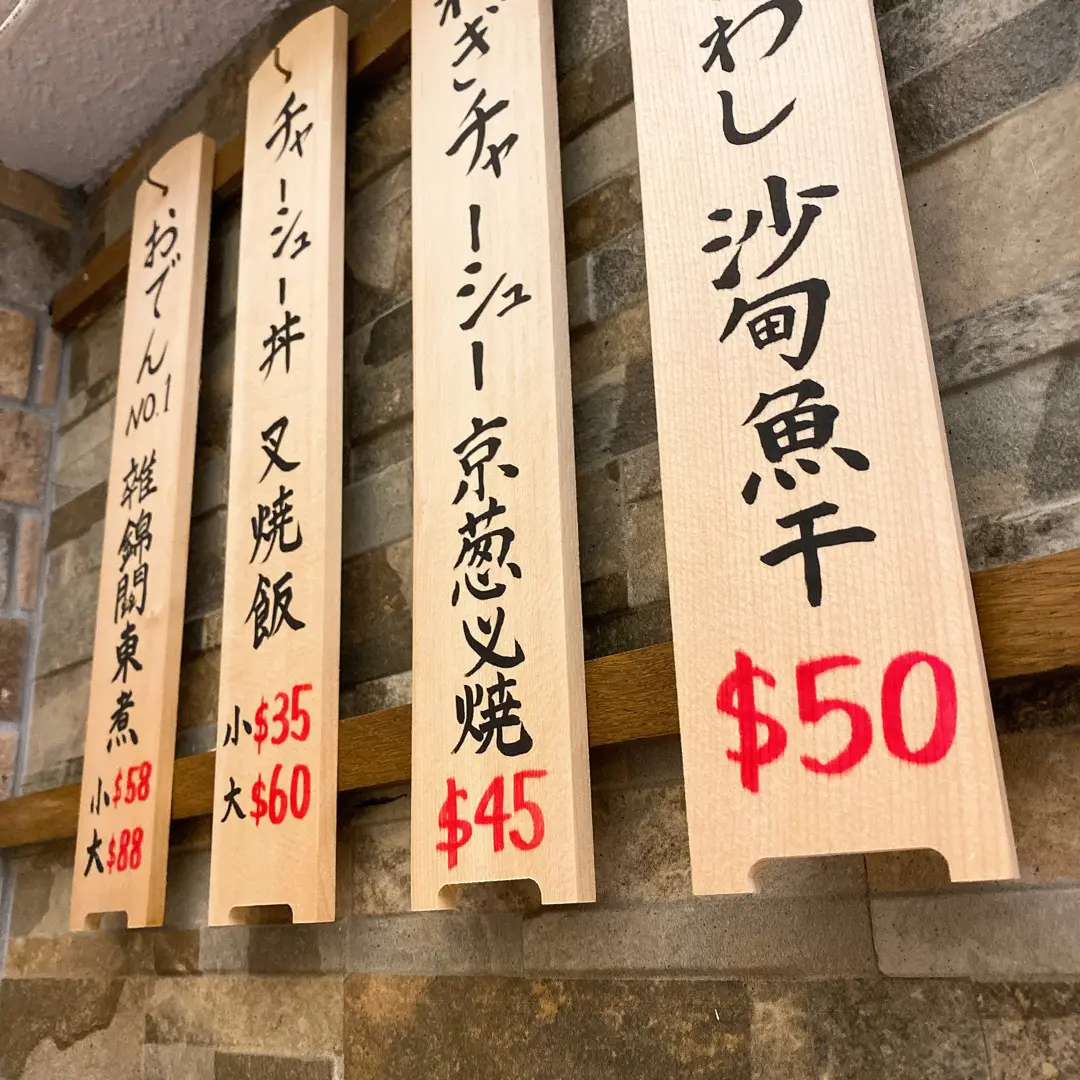 〜おでん NO.1 雑錦関東煮
小$58
大$88
〜チャーシュー丼 叉焼飯
小$35
大$60
ぎチャーシュー 京葱叉焼
$45
わし 沙甸魚干
$50